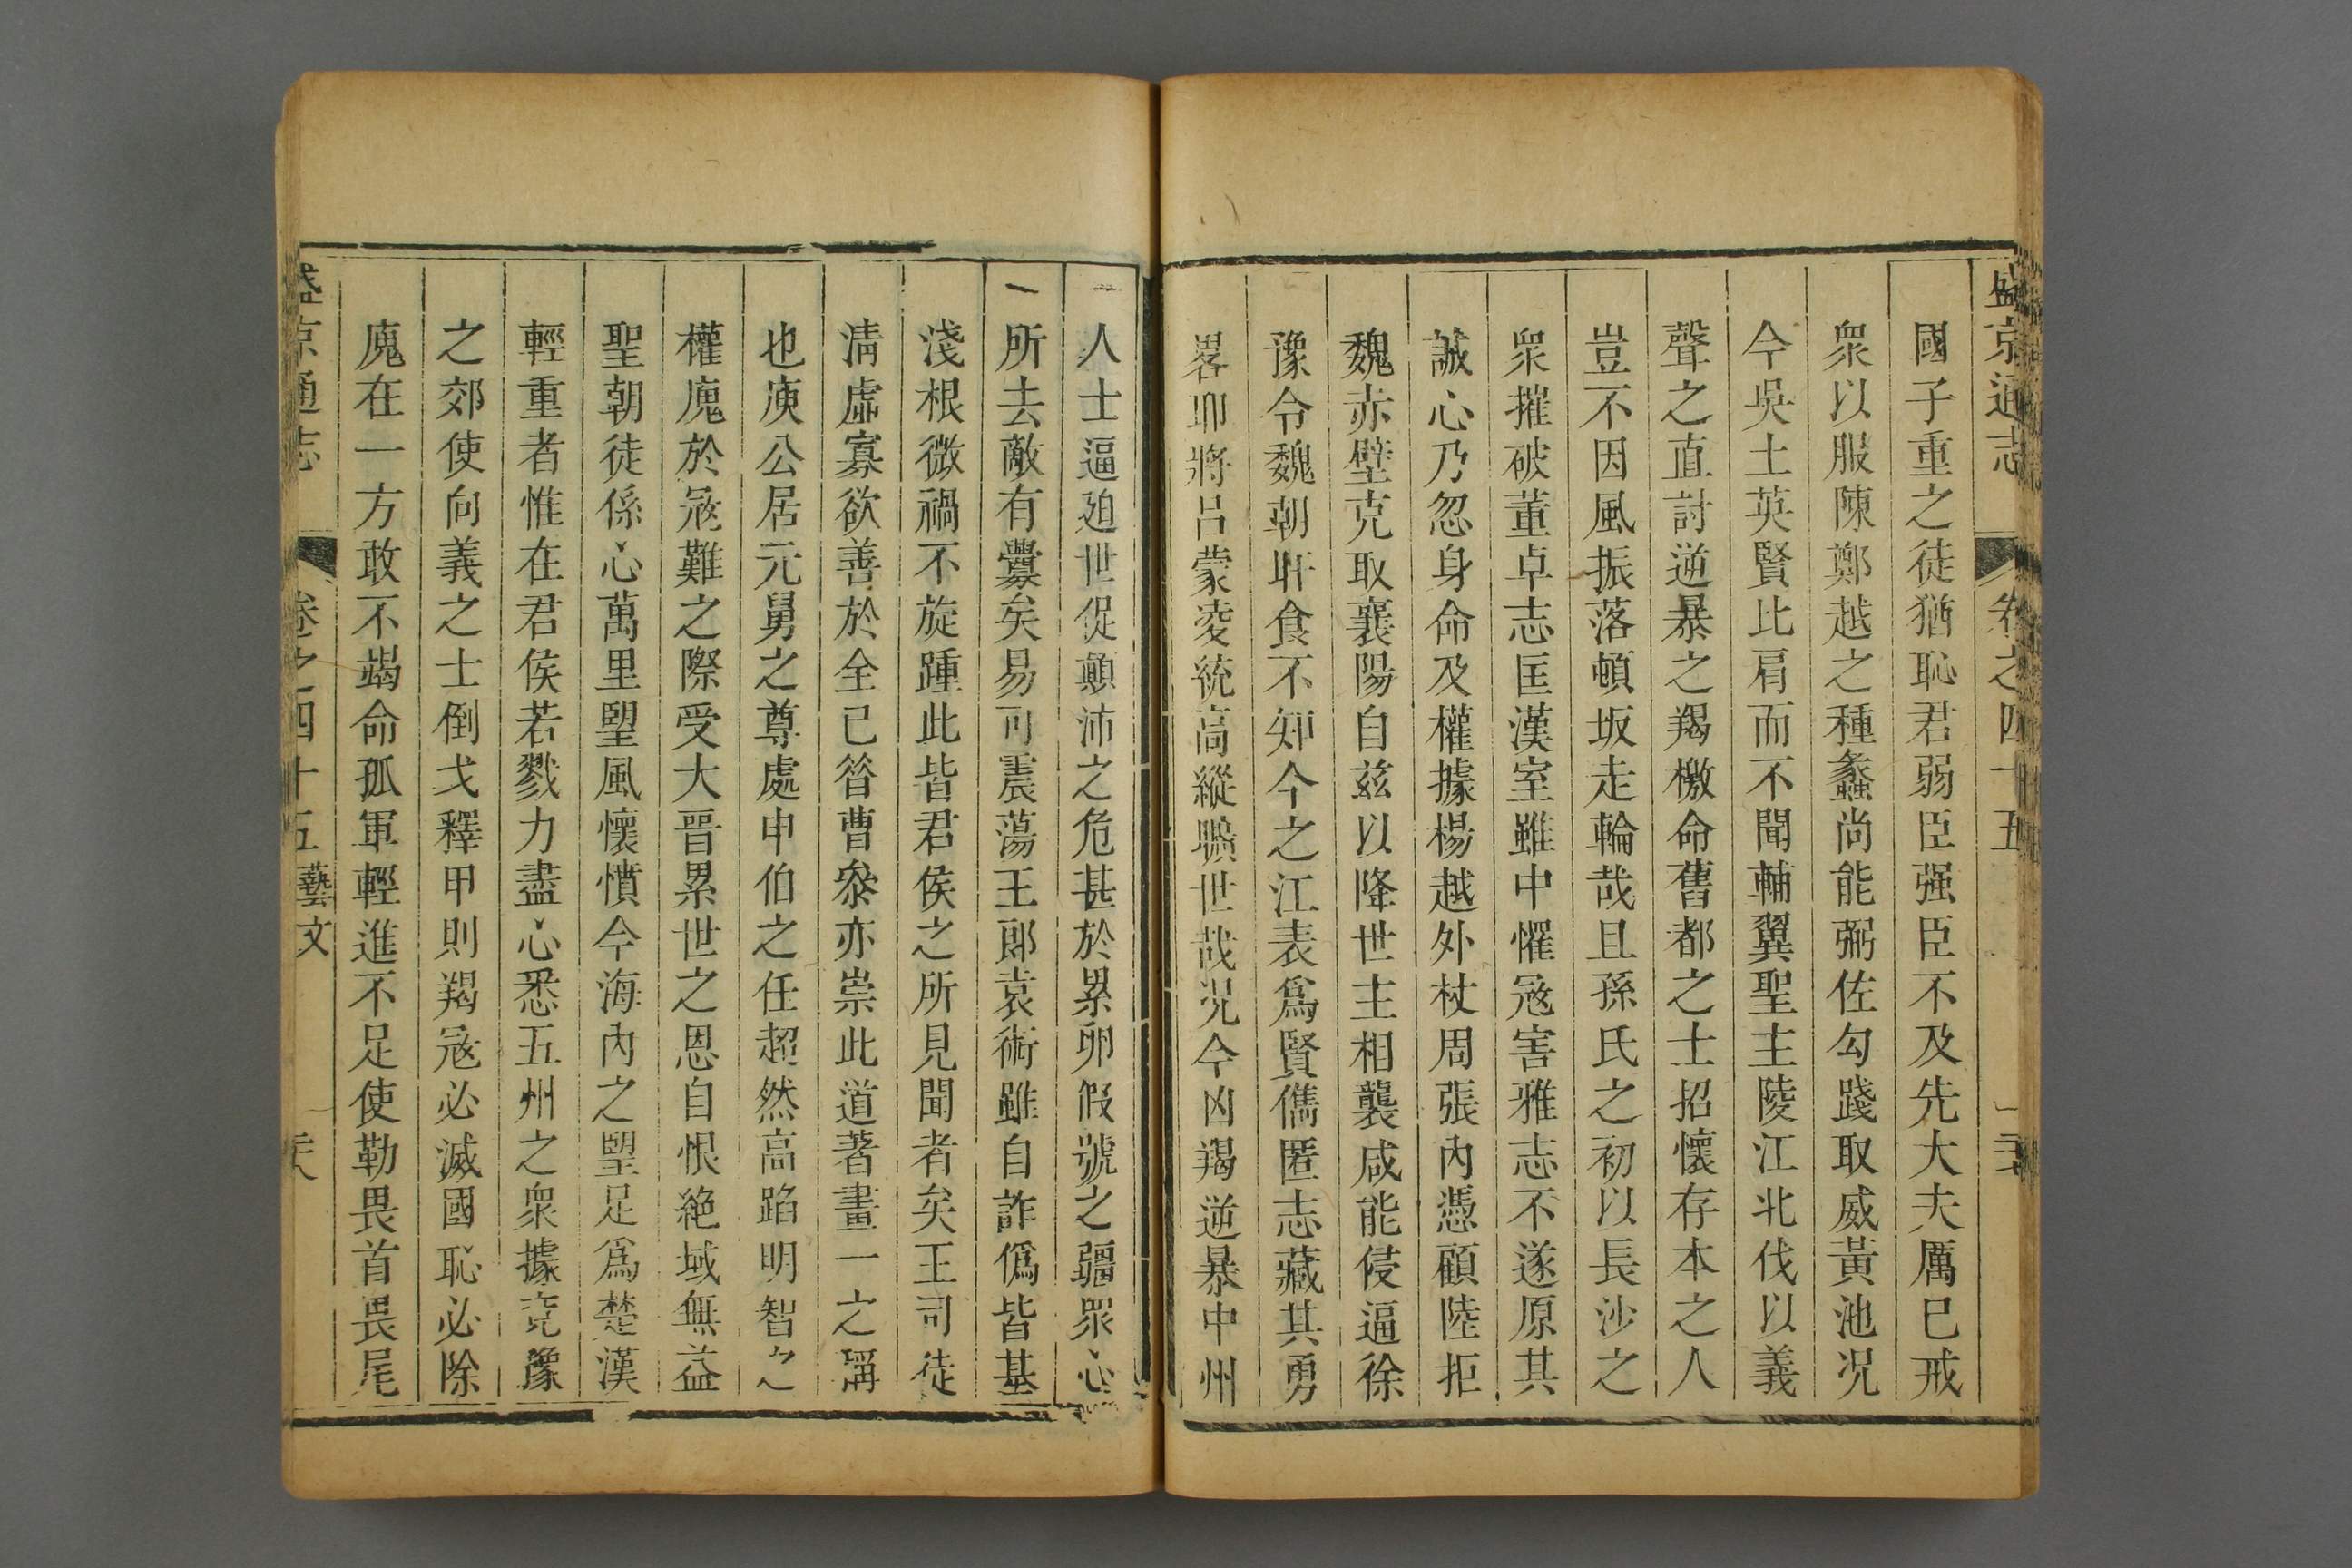 盛京通志 卷之四十五
國子重之徒猶恥君弱臣强臣不及先大夫厲巳戒
衆以服陳鄭越之種蠡尚能弼佐勾踐取威黃池况
今吳土英賢比肩而不聞輔翼聖主陵江北伐以義
聲之直討逆暴之羯檄命舊都之士招懷存本之人
豈不因風振落頓坂走輪哉且孫氏之初以長沙之
衆摧破董卓志匡漢室雖中懼宼害雅志不遂原其
誠心乃忽身命及權據楊越外杖周張內憑顧陸拒
魏赤壁克取襄陽自兹以降世主相襲咸能侵逼徐
豫令魏朝旰食不知今之江表爲賢儁匿志藏其勇
畧耶將呂蒙凌統高縱曠世哉況今凶羯逆暴中州
人士逼廹世促顛沛之危甚於累卵假號之疆眾心
所去敵有釁矣易可震蕩王郎袁術雖自詐僞皆基
淺根微禍不旋踵此皆君侯之所見聞者矣王司徒
清虛寡欲善於全已昝曹叅亦崇此道著畫一之稱
也庾公居元舅之尊處申伯之任超然高蹈明智之
權廆於宼難之際受大晉累世之恩自恨絶域無益
聖朝徒係心萬里望風懷憤今海內之望足爲楚漢
輕重者惟在君侯若戮力盡心悉五州之衆據兗豫
之郊使向義之士倒戈釋甲則羯宼必滅國恥必除
廆在一方敢不竭命孤軍輕進不足使勒畏首畏尾
盛京通志 卷之四十五藝文